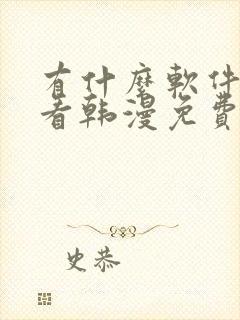 有什麼軟件
看韓漫免費
史恭